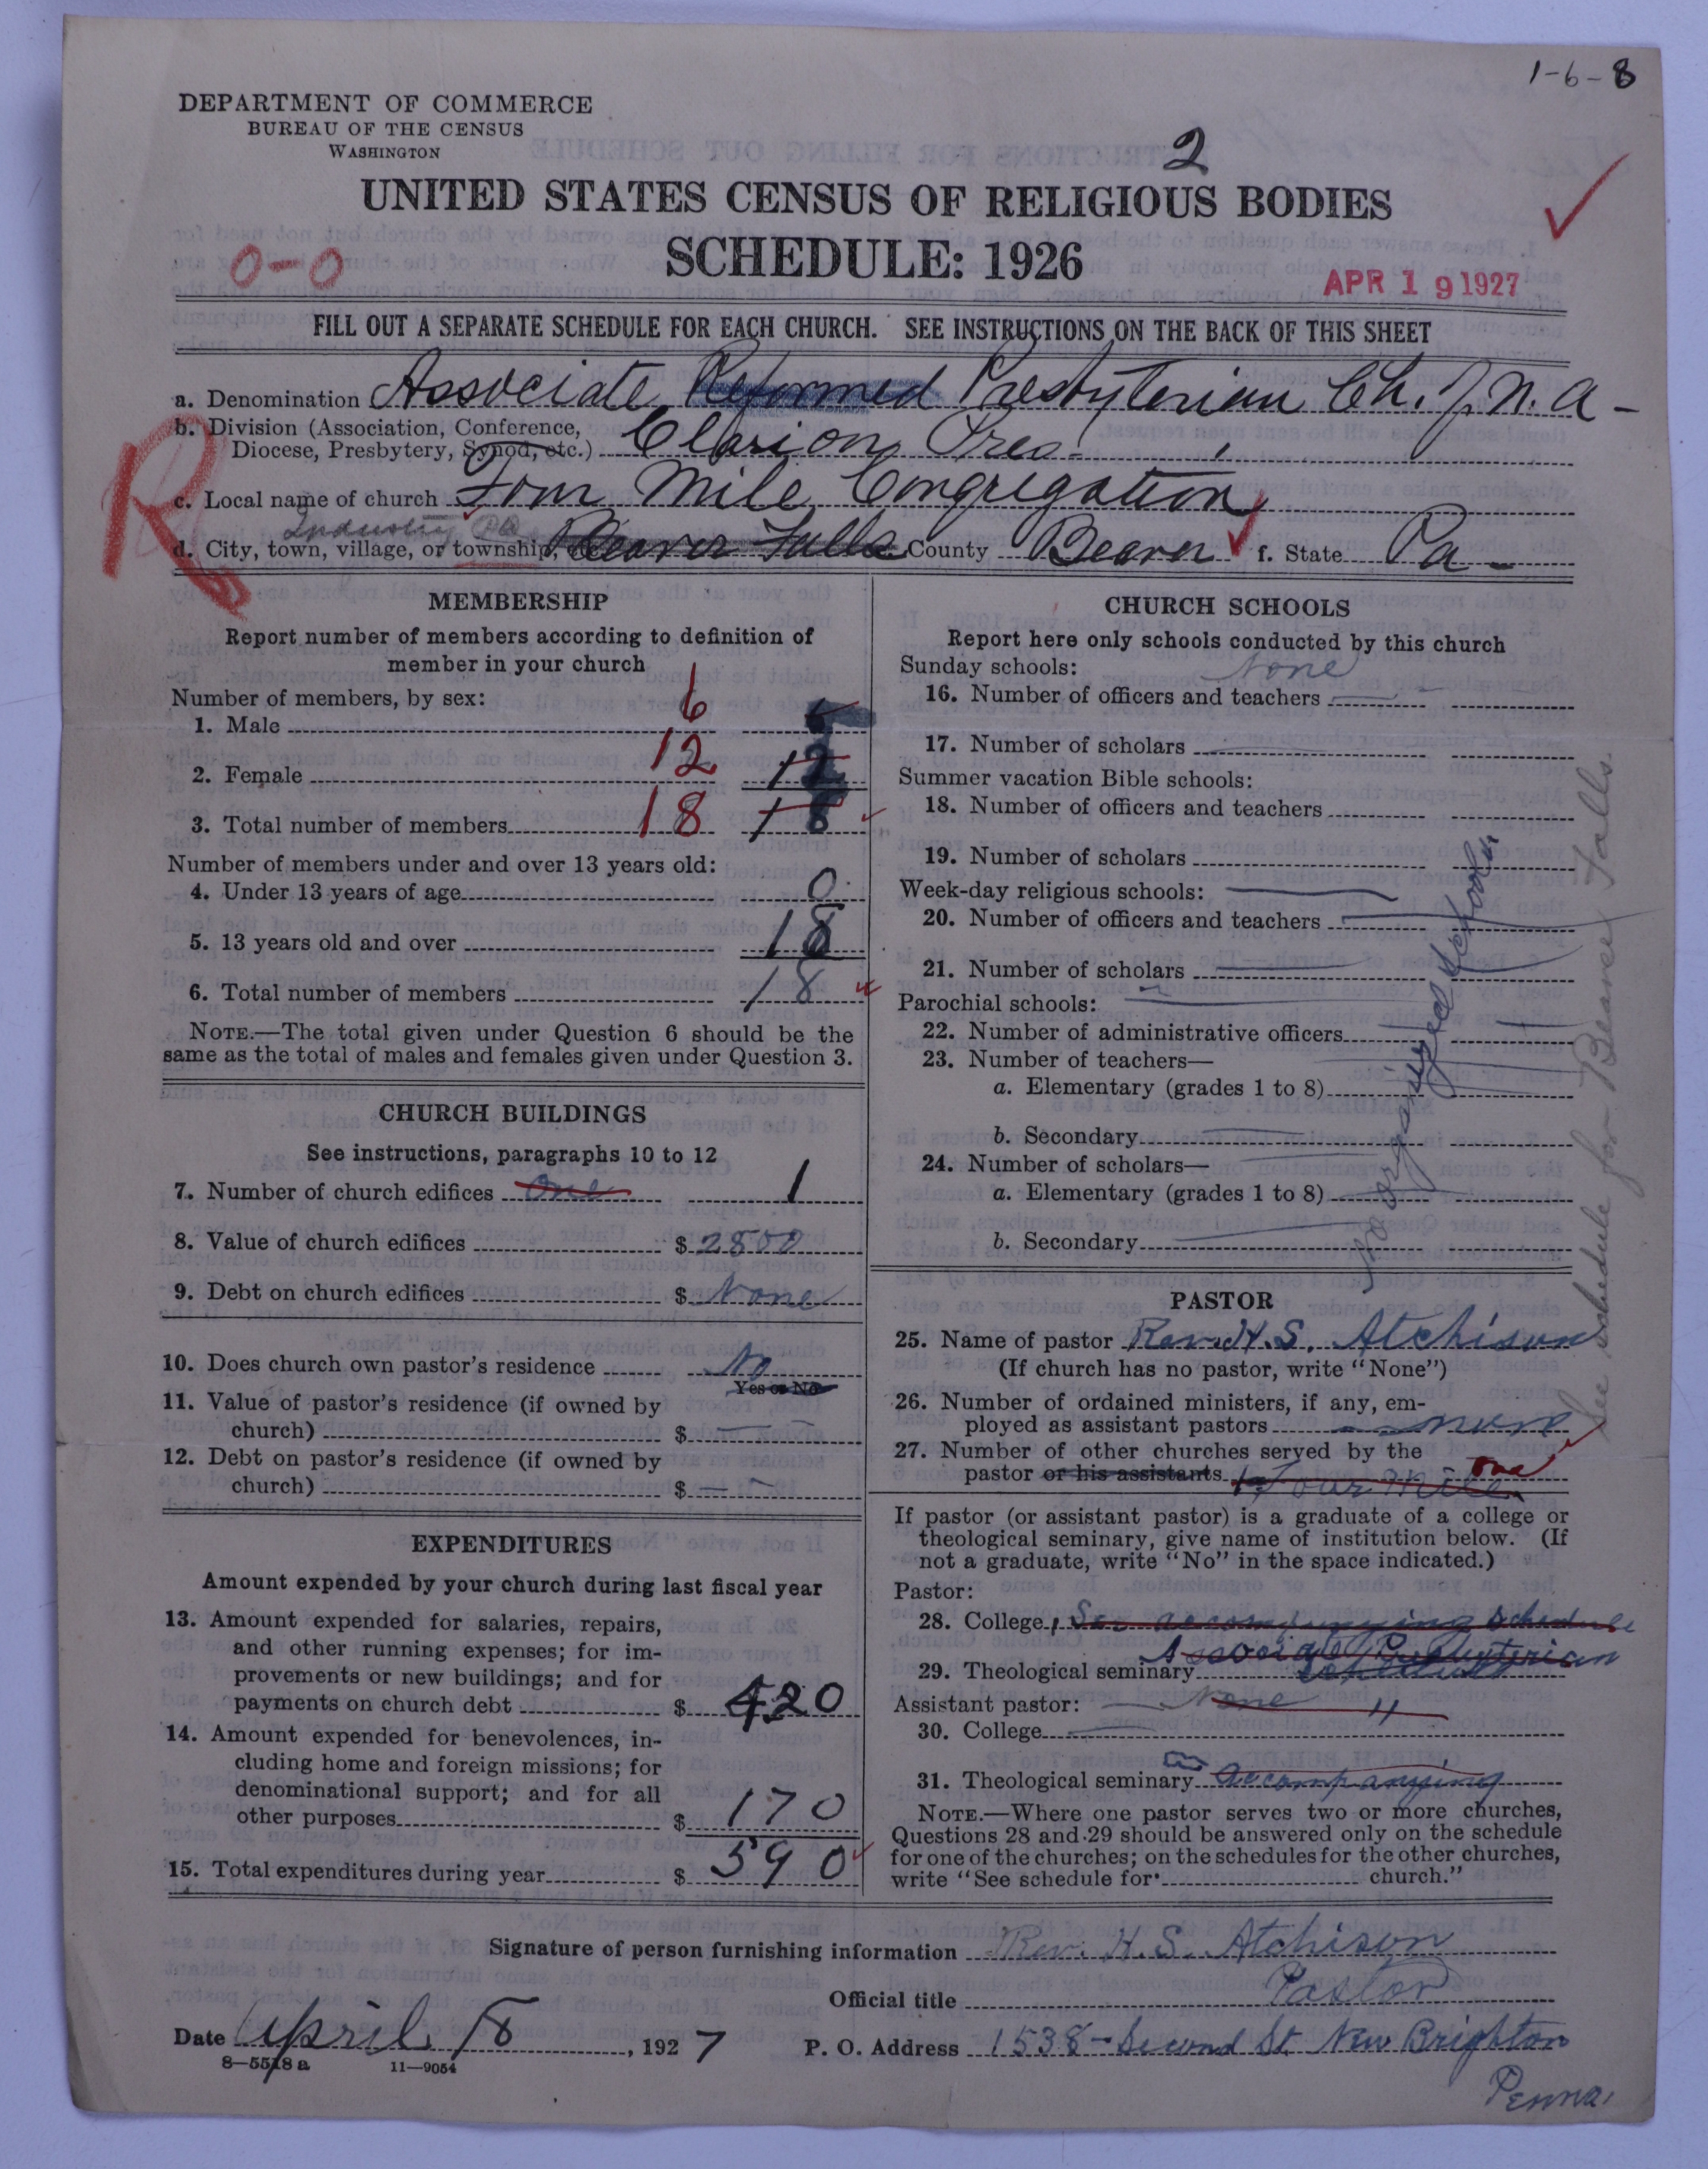 1-6-8
DEPARTMENT OF COMMERCE
BUREAU OF THE CENSUS
WASHINGTON
2
UNITED STATES CENSUS OF RELIGIOUS BODIES
SCHEDULE: 1926
0-0
APR 19 1927
FILL OUT A SEPARATE SCHEDULE FOR EACH CHURCH. SEE INSTRUCTIONS ON THE BACK OF THIS SHEET
a. Denomination Associate Reformed Presbyterian Ch. of N. A-
b. Division (Association, Conference,
Diocese, Presbytery, Synod, etc.) Clarion Pres.
R
c. Local name of church Four Mile Congregation
Industry Pa
d. City, town, village, or township Beaver Falls County Beaver f. State Pa-
MEMBERSHIP
Report number of members according to definition of
member in your church
Number of members, by sex:
1. Male 6 6
2. Female 12 12
3. Total number of members 18 18
Number of members under and over 13 years old:
4. Under 13 years of age 0
5. 13 years old and over 18
6. Total number of members 18
NOTE.—The total given under Question 6 should be the
same as the total of males and females given under Question 3.
CHURCH BUILDINGS
See instructions, paragraphs 10 to 12
7. Number of church edifices One 1
8. Value of church edifices $ 2800
9. Debt on church edifices $ None
10. Does church own pastor's residence No
Yes or No
11. Value of pastor's residence (if owned by
church) $ —
12. Debt on pastor's residence (if owned by
church) $ —
EXPENDITURES
Amount expended by your church during last fiscal year
13. Amount expended for salaries, repairs,
and other running expenses; for im-
provements or new buildings; and for
payments on church debt $ 420
14. Amount expended for benevolences, in-
cluding home and foreign missions; for
denominational support; and for all
other purposes $ 170
15. Total expenditures during year $ 590
CHURCH SCHOOLS
Report here only schools conducted by this church
Sunday schools: None
16. Number of officers and teachers
17. Number of scholars
Summer vacation Bible schools:
18. Number of officers and teachers
19. Number of scholars
Week-day religious schools:
20. Number of officers and teachers
21. Number of scholars
Parochial schools:
22. Number of administrative officers
23. Number of teachers—
a. Elementary (grades 1 to 8)
b. Secondary
24. Number of scholars—
a. Elementary (grades 1 to 8)
b. Secondary
No organized schools
See schedule for Beaver Falls.
PASTOR
25. Name of pastor Rev. H. S. Atchison
(If church has no pastor, write "None")
26. Number of ordained ministers, if any, em-
ployed as assistant pastors none
27. Number of other churches served by the
pastor or his assistants 1 Four Mile one
If pastor (or assistant pastor) is a graduate of a college or
theological seminary, give name of institution below. (If
not a graduate, write "No" in the space indicated.)
Pastor:
28. College, See accompanying schedule
Associate Presbyterian
29. Theological seminary
Assistant pastor: None "
30. College
31. Theological seminary accompanying
NOTE.—Where one pastor serves two or more churches,
Questions 28 and 29 should be answered only on the schedule
for one of the churches; on the schedules for the other churches,
write "See schedule for church."
Signature of person furnishing information Rev. H. S. Atchison
Official title Pastor
Date April 18, 1927 P. O. Address 1538-Second St. New Brighton
Penna.
8-5518 a 11-9054